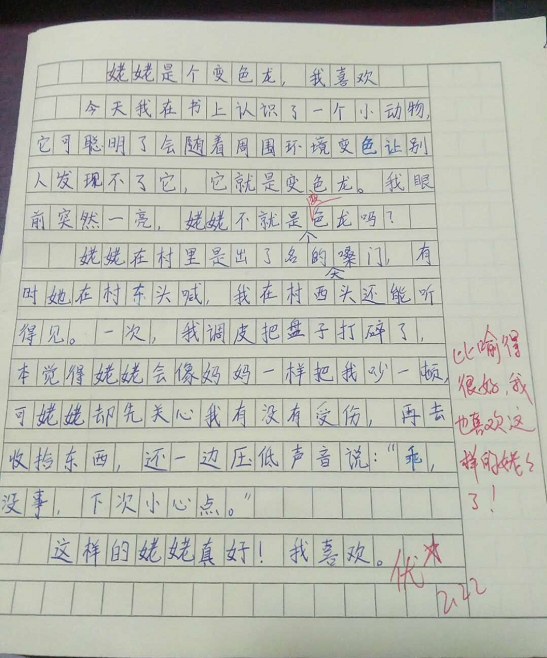 姥姥是个变色龙，我喜欢
今天我在书上认识了一个小动物，
它可聪明了会随着周围环境变色让别
人发现不了它，它就是变色龙。我眼
变
前突然一亮，姥姥不就是色龙吗？
姥姥在村里是出了名的嗓门，有
大
时她在村东头喊，我在村西头还能听
得见。一次，我调皮把盘子打碎了，
本觉得姥姥会像妈妈一样把我吵一顿，
可姥姥却先关心我有没有受伤，再去
收拾东西，还一边压低声音说：“乖，
没事，下次小心点。”
这样的姥姥真好！我喜欢。
比喻得
很好，我
也喜欢这
样的姥姥
了！
优
2.22